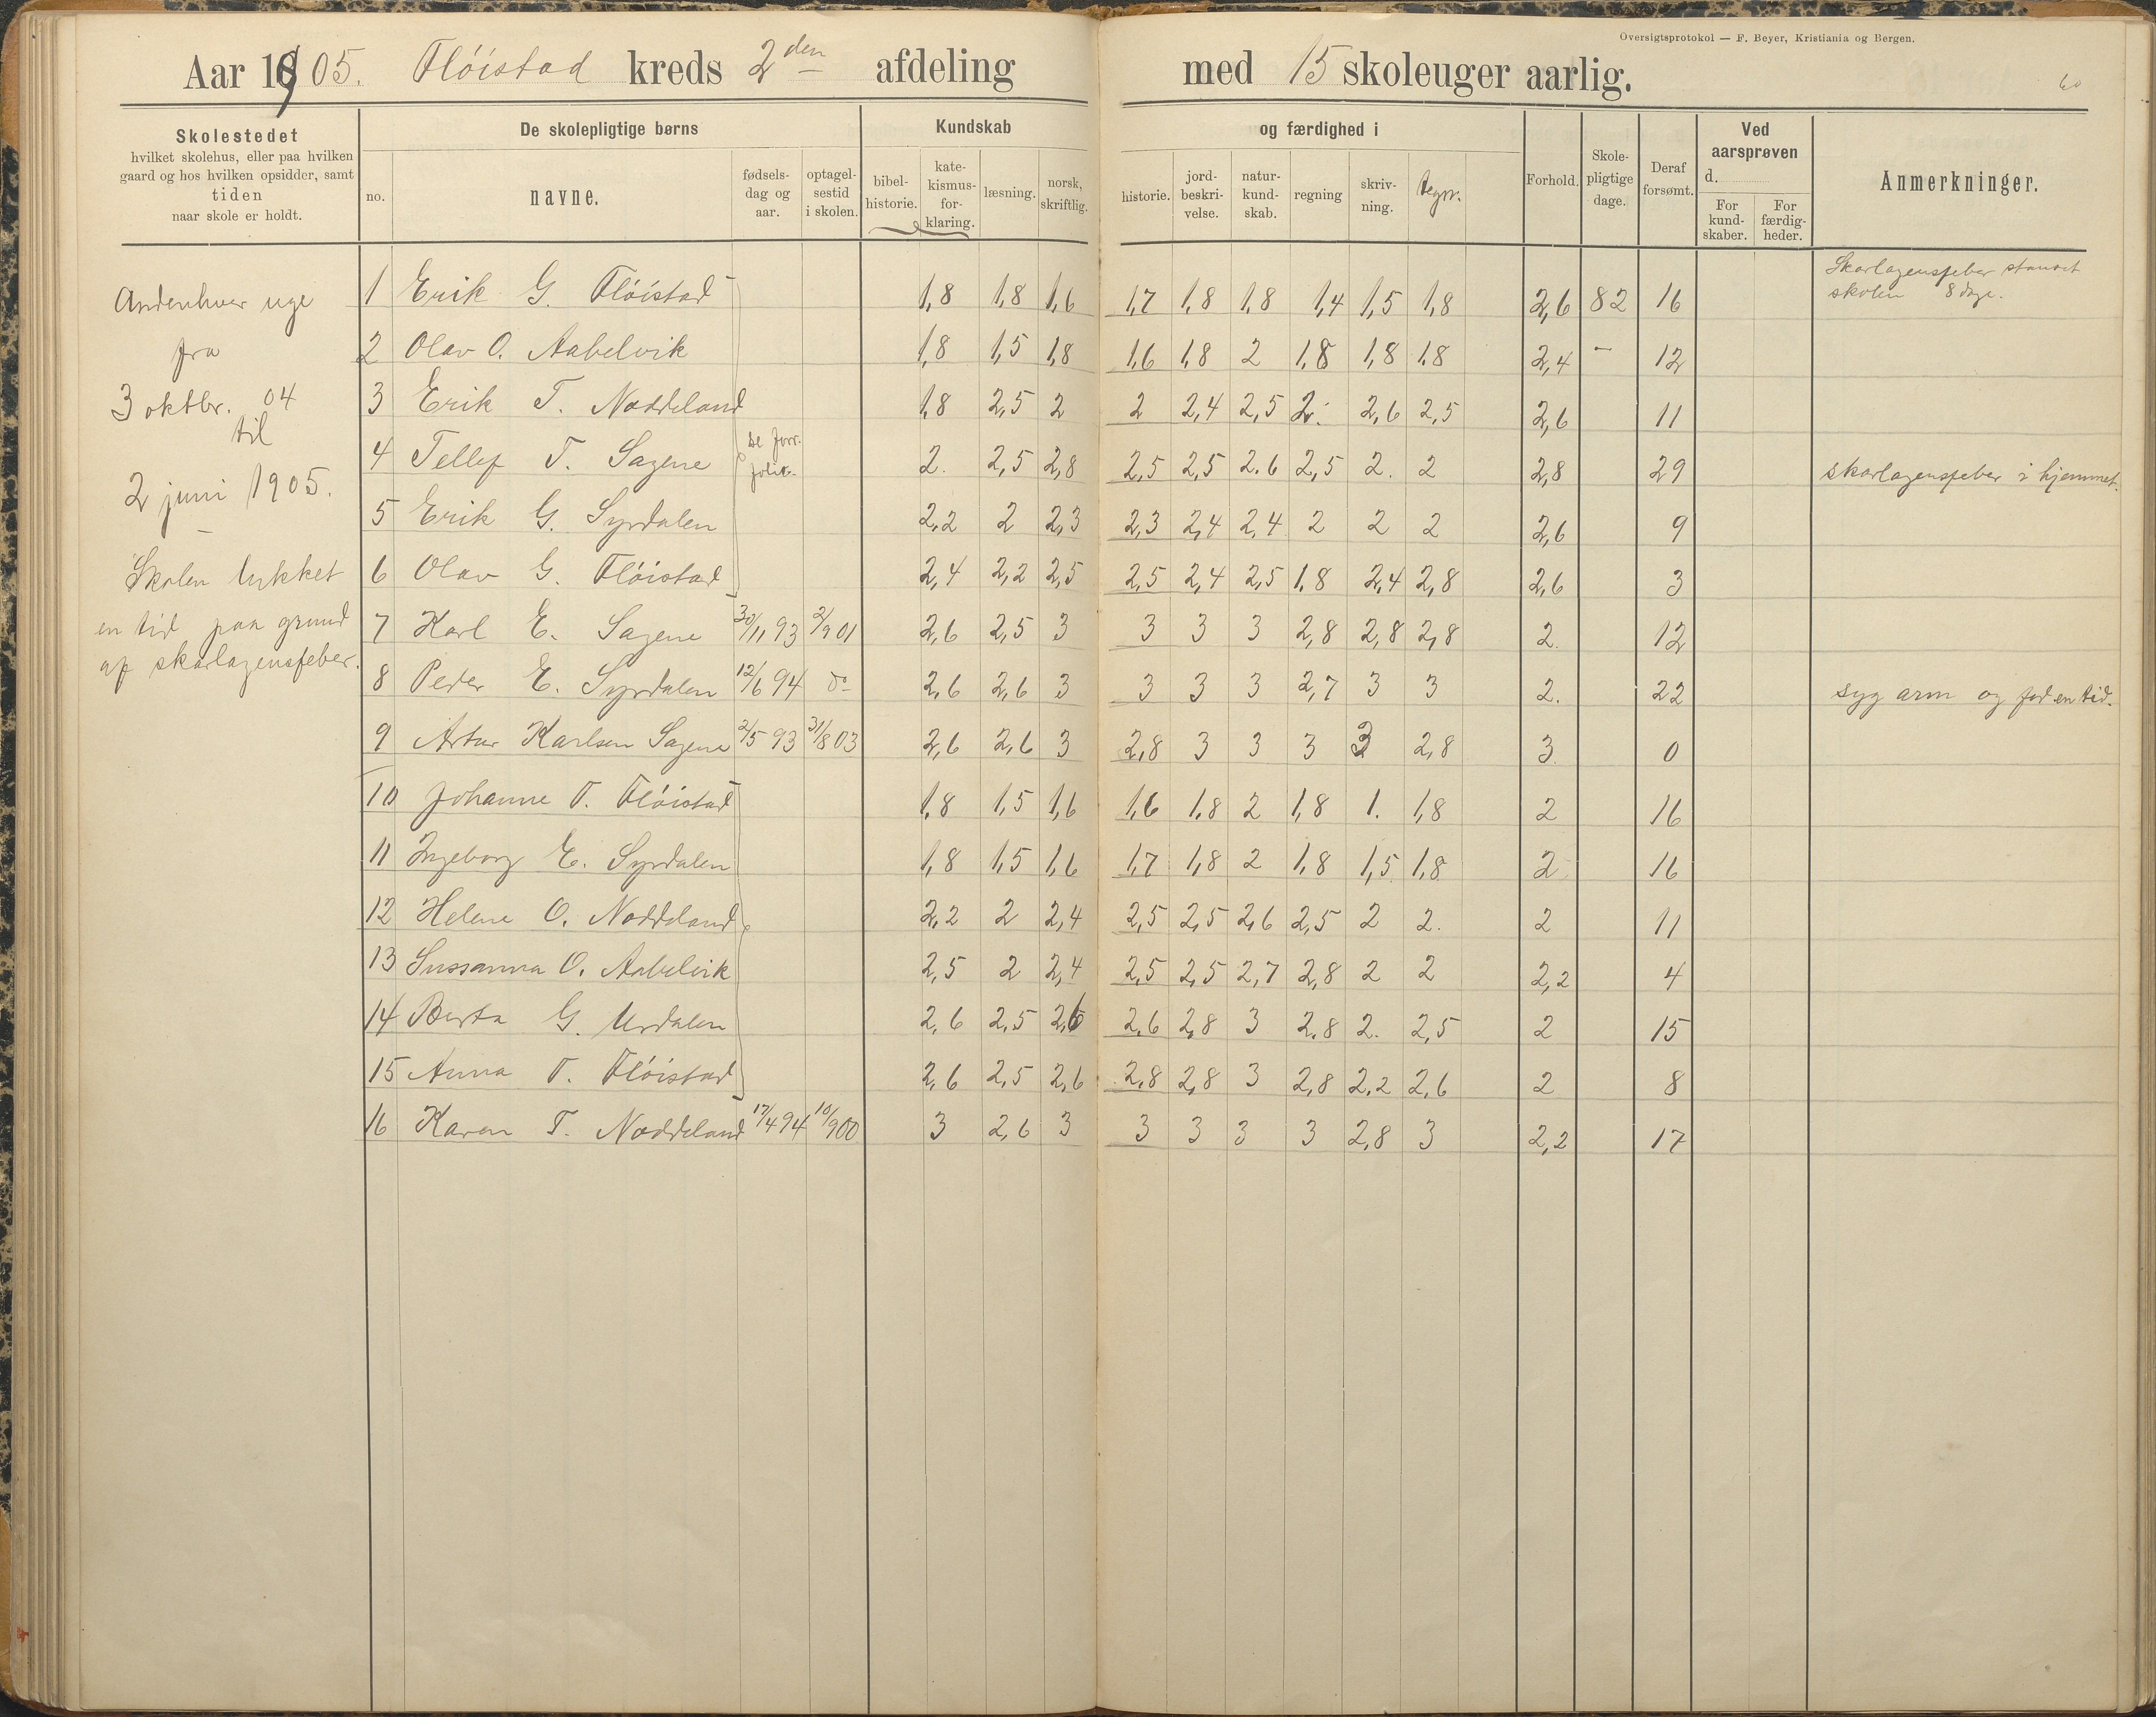 Oversigtsprotokol — F. Beyer, Kristiania og Bergen.
Aar 1905. Flöistad kreds 2den afdeling med 15 skoleuger aarlig.
60
Skolestedet
hvilket skolehus, eller paa hvilken
gaard og hos hvilken opsidder, samt
tiden
naar skole er holdt.
De skolepligtige børns
no.
navne.
fødsels-
dag og
aar.
optagel-
sestid
i skolen.
Kundskab
bibel-
historie.
kate-
kismus-
for-
klaring.
læsning.
norsk,
skriftlig.
og færdighed i
historie.
jord-
beskri-
velse.
natur-
kund-
skab.
regning
skriv-
ning.
tegn.
Forhold.
Skole-
pligtige
dage.
Deraf
forsømt.
Ved
aarsprøven
d.
For
kund-
skaber.
For
færdig-
heder.
Anmerkninger.
Andenhver uge
fra
3 oktbr. 04
til
2 juni 1905.
Skolen lukket
en tid paa grund
af skarlagensfeber.
1 Erik G. Flöistad 1,8 1,8 1,6 1,7 1,8 1,8 1,4 1,5 1,8 2,6 82 16 Skarlagensfeber stanset
skolen 8 dage.
2 Olav O. Aabelvik 1,8 1,5 1,8 1,6 1,8 2 1,8 1,8 1,8 2,4 — 12
3 Erik T. Noddeland 1,8 2,5 2 2 2,4 2,5 2. 2,6 2,5 2,6 11
se forr.
folio
4 Tellef T. Sagene 2. 2,5 2,8 2,5 2,5 2.6 2,5 2. 2 2,8 29 skarlagensfeber i hjemmet.
5 Erik G. Syrdalen 2,2 2 2,3 2,3 2,4 2,4 2 2 2 2,6 9
6 Olav G. Flöistad 2,4 2,2 2,5 2,5 2,4 2,5 1,8 2,4 2,8 2,6 3
7 Karl E. Sagene 30/11 93 2/9 01 2,6 2,5 3 3 3 3 2,8 2,8 2,8 2. 12
8 Peder E. Syrdalen 12/6 94 do 2,6 2,6 3 3 3 3 2,7 3 3 2. 22 syg arm og fod en tid.
9 Artur Karlsen Sagene 2/5 93 31/8 03 2,6 2,6 3 2,8 3 3 3 3 2,8 3 0
10 Johanne T. Flöistad 1,8 1,5 1,6 1,6 1,8 2 1,8 1. 1,8 2 16
11 Ingeborg E. Syrdalen 1,8 1,5 1,6 1,7 1,8 2 1,8 1,5 1,8 2 16
12 Helene O. Noddeland 2,2 2 2,4 2,5 2,5 2,6 2,5 2 2. 2 11
13 Sussanna O. Aabelvik 2,5 2 2,4 2,5 2,5 2,7 2,8 2 2 2,2 4
14 Berta G. Urdalen 2,6 2,5 2,6 2,6 2,8 3 2,8 2. 2,5 2 15
15 Anna T. Flöistad 2,6 2,5 2,6 2,8 2,8 3 2,8 2,2 2,6 2 8
16 Karen T. Noddeland 17/4 94 10/9 00 3 2,6 3 3 3 3 3 2,8 3 2,2 17